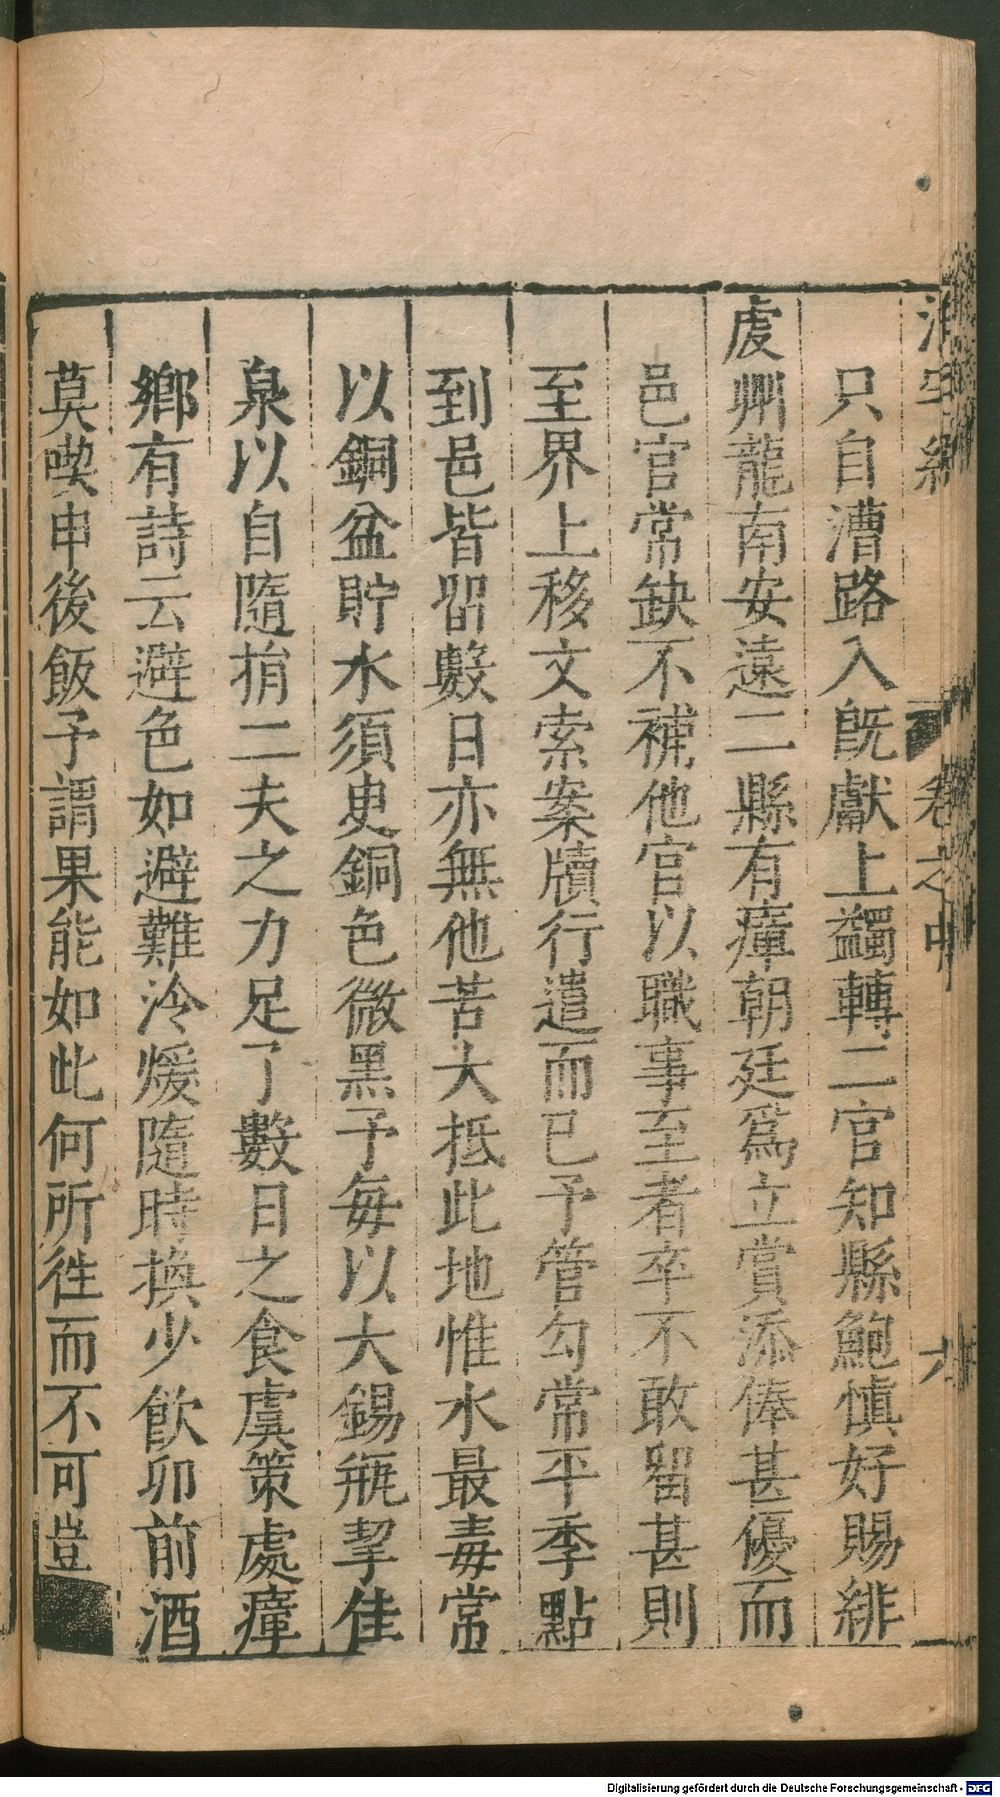 卷之中
只自漕路入旣獻上蠲轉二官知縣鮑愼好賜緋
虔州龍南安遠二縣有瘴朝廷爲立賞添俸甚優而
邑官常缺不補他官以職事至者卒不敢留甚則
至界上移文索案牘行遣而已予管勾常平季點
到邑皆畱數日亦無他苦大抵此地惟水最毒常
以銅盆貯水須臾銅色微黑予每以大錫甁挈佳
泉以自隨捐二夫之力足了數日之食虞策處瘴
鄉有詩云避色如避難冷煖隨時換少飮卯前酒
莫喫申後飯予謂果能如此何所徃而不可豈
Digitalisierung gefördert durch die Deutsche Forschungsgemeinschaft - DFG